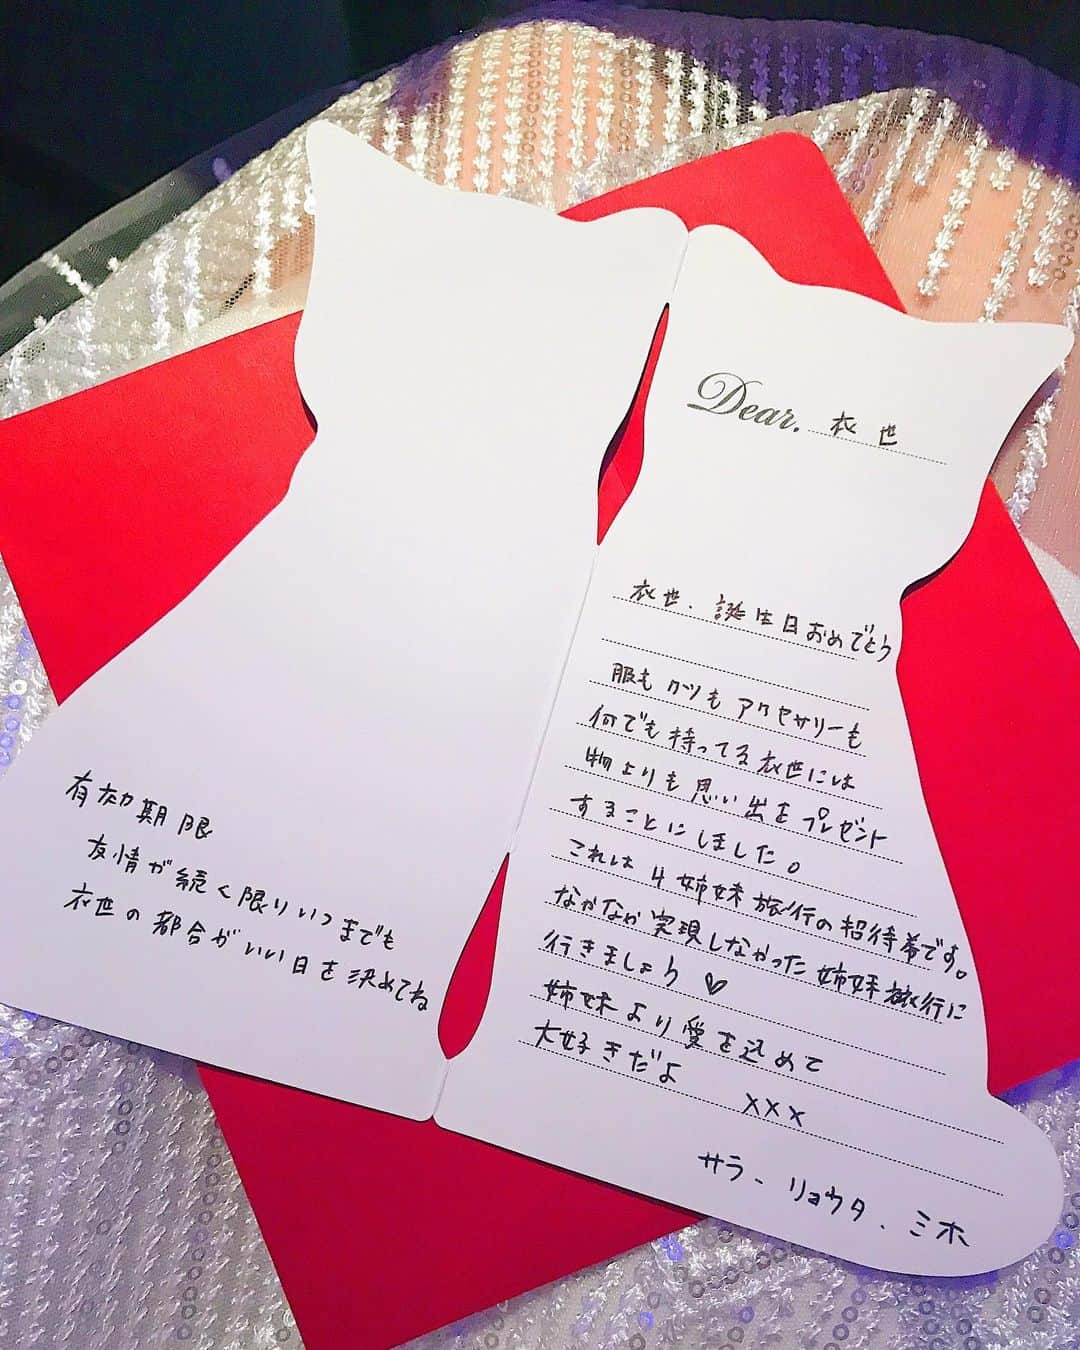 有効期限
友情が続く限りいつまでも
衣世の都合がいい日を決めてね
Dear. 衣世
衣世、誕生日おめでとう
服もクツもアクセサリーも
何でも持ってる衣世には
物よりも思い出をプレゼント
することにしました。
これは4姉妹旅行の招待券です。
なかなか実現しなかった姉妹旅行に
行きましょう♡
姉妹より愛を込めて
大好きだよ xxx
サラ、リョウタ、ミホ